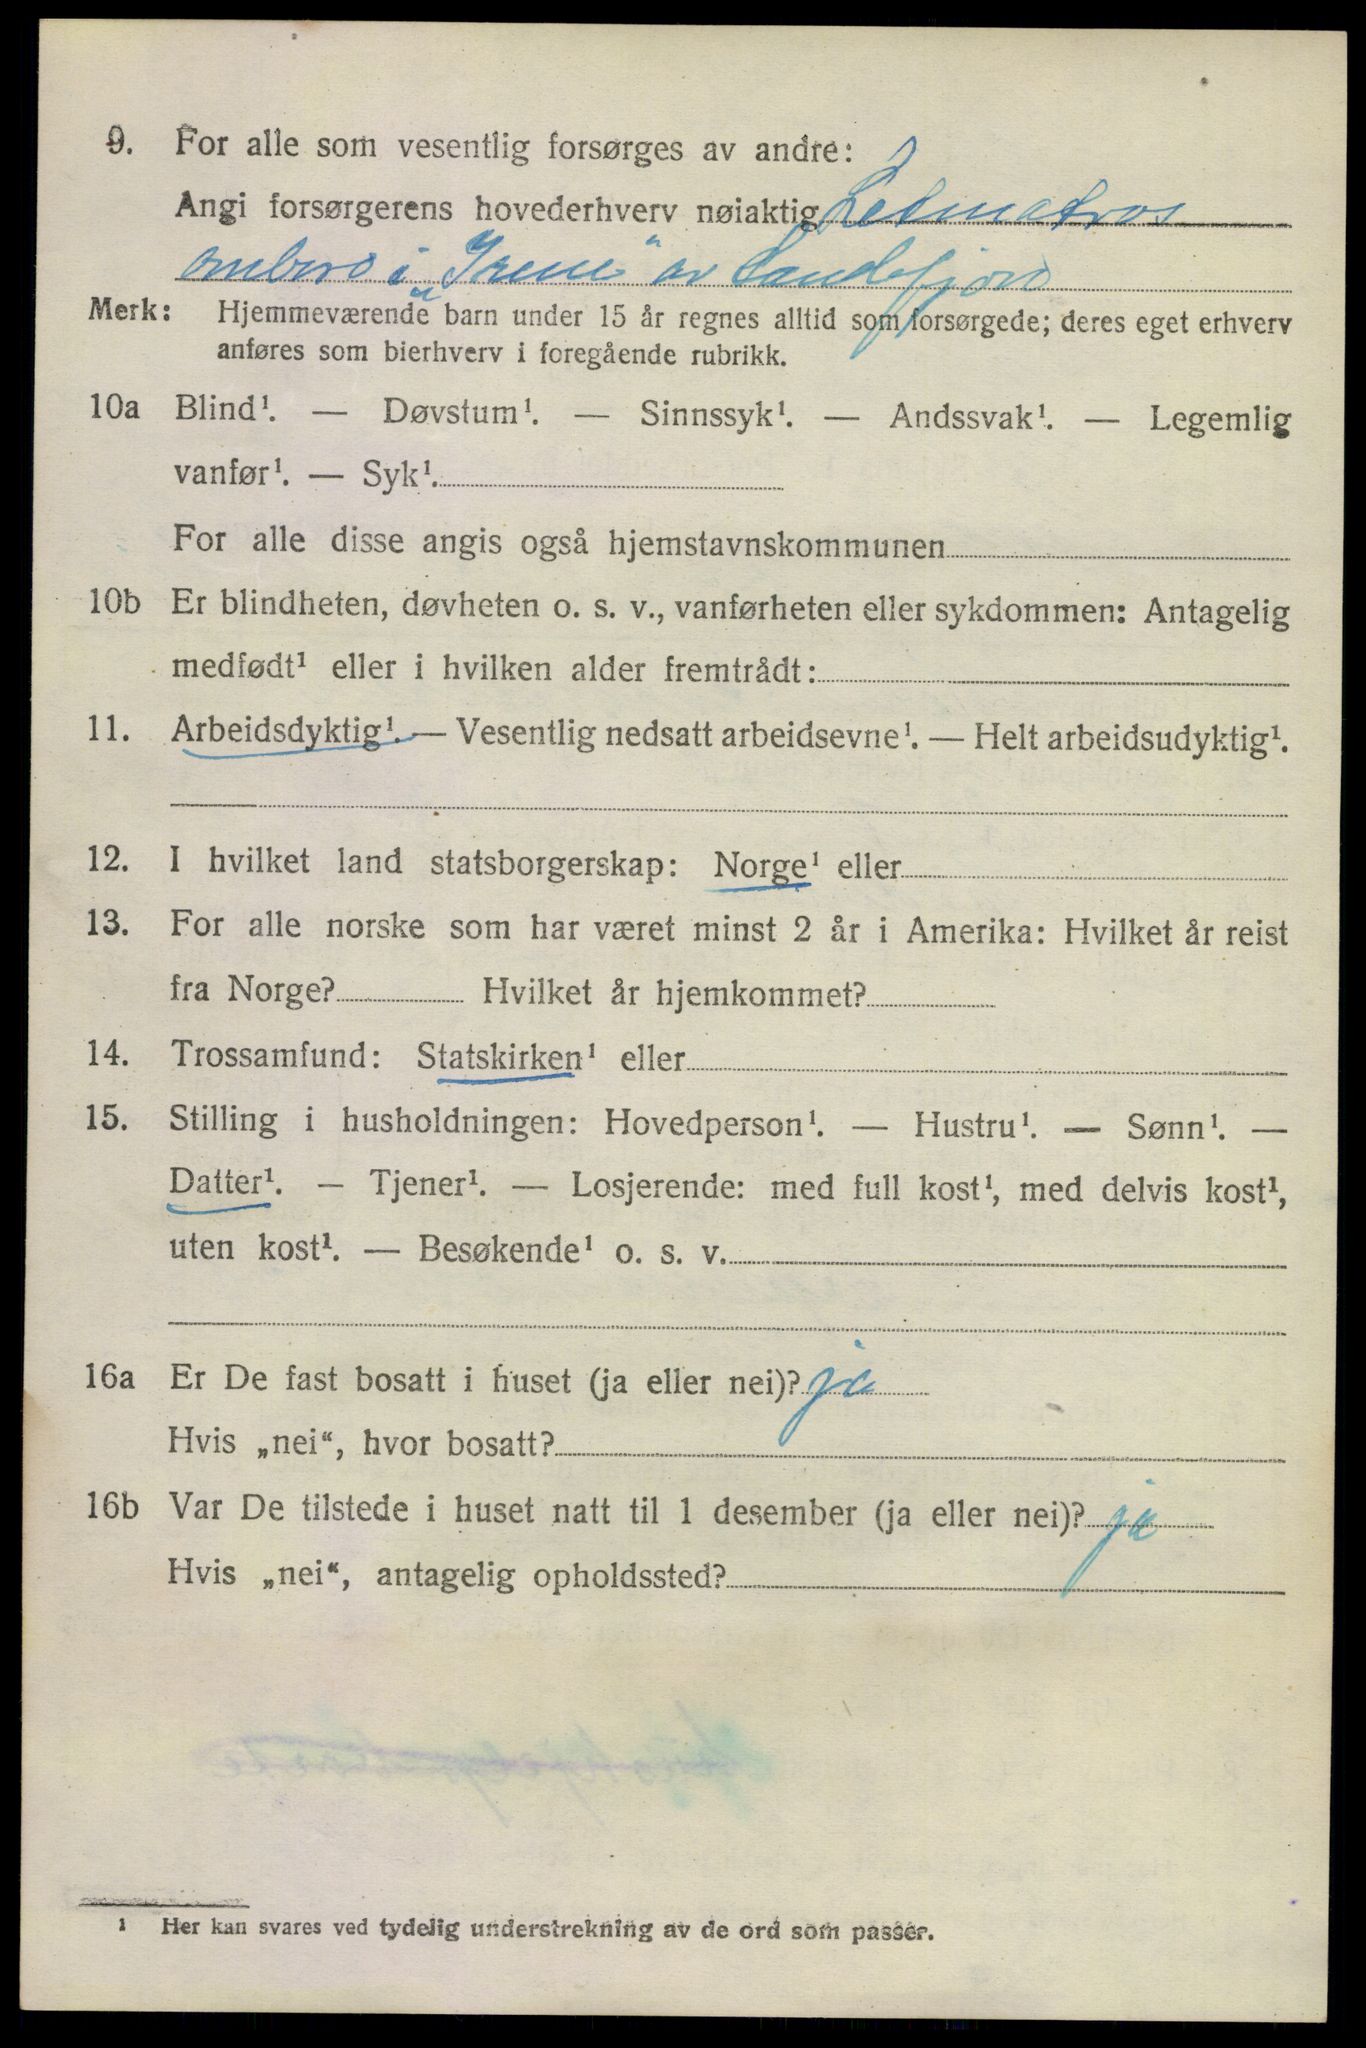 9. For alle som vesentlig forsørges av andre:
Angi forsørgerens hovederhverv nøiaktig Letmatros
ombord i „Irene" av Sandefjord
Merk: Hjemmeværende barn under 15 år regnes alltid som forsørgede; deres eget erhverv
anføres som bierhverv i foregående rubrikk.
10a Blind¹. — Døvstum¹. — Sinnssyk¹. — Andssvak¹. — Legemlig
vanfør¹. — Syk¹.
For alle disse angis også hjemstavnskommunen
10b Er blindheten, døvheten o. s. v., vanførheten eller sykdommen: Antagelig
medfødt¹ eller i hvilken alder fremtrådt:
11. Arbeidsdyktig¹. — Vesentlig nedsatt arbeidsevne¹. — Helt arbeidsudyktig¹.
12. I hvilket land statsborgerskap: Norge¹ eller
13. For alle norske som har været minst 2 år i Amerika: Hvilket år reist
fra Norge? Hvilket år hjemkommet?
14. Trossamfund: Statskirken¹ eller
15. Stilling i husholdningen: Hovedperson¹. — Hustru¹. — Sønn¹. —
Datter¹. — Tjener¹. — Losjerende: med full kost¹, med delvis kost¹,
uten kost¹. — Besøkende¹ o. s. v.
16a Er De fast bosatt i huset (ja eller nei)? ja
Hvis „nei“, hvor bosatt?
16b Var De tilstede i huset natt til 1 desember (ja eller nei)? ja
Hvis „nei“, antagelig opholdssted?
¹ Her kan svares ved tydelig understrekning av de ord som passer.